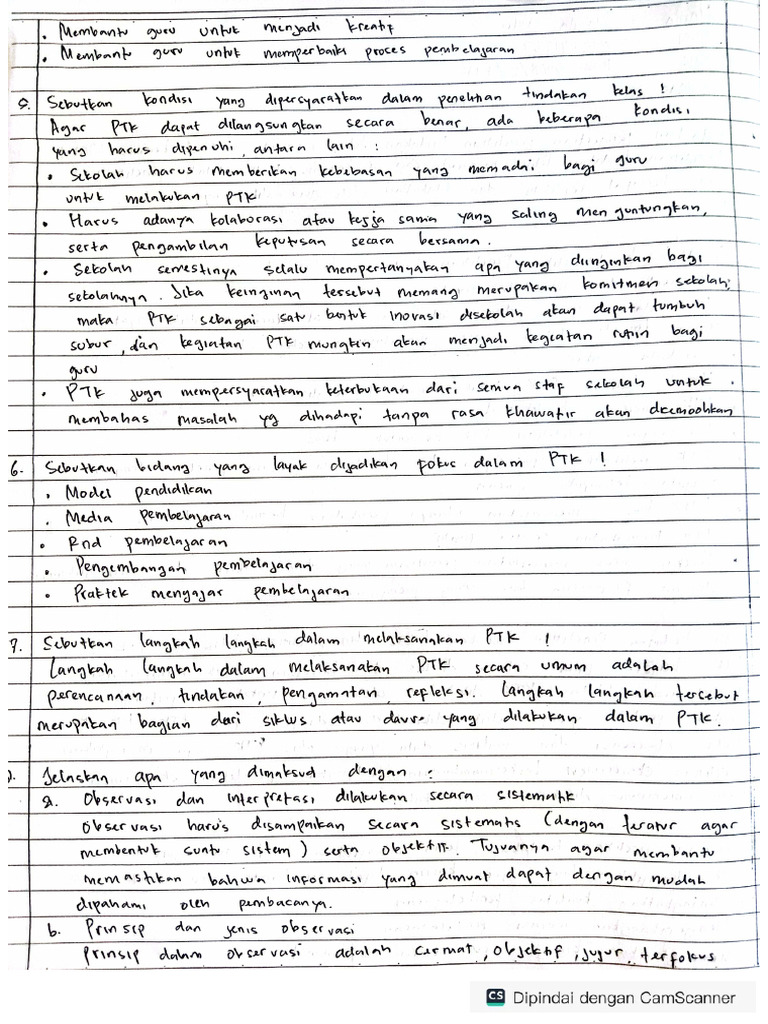 • Membantu guru untuk menjadi kreatif
• Membantu guru untuk memperbaiki proces pembelajaran
5. Sebutkan kondisi yang dipersyaratkan dalam penelitian tindakan kelas !
Agar PTK dapat dilangsungkan secara benar, ada beberapa kondisi
yang harus dipenuhi, antara lain :
• Sekolah harus memberikan kebebasan yang memadai bagi guru
untuk melakukan PTK
• Harus adanya kolaborasi atau kerja sama yang saling menguntungkan,
serta pengambilan keputusan secara bersama.
• Sekolah semestinya selalu mempertanyakan apa yang diinginkan bagi
sekolahnya. Jika keinginan tersebut memang merupakan komitmen sekolah,
maka PTK sebagai satu bentuk inovasi disekolah akan dapat tumbuh
subur, dan kegiatan PTK mungkin akan menjadi kegiatan rutin bagi
guru
• PTK juga mempersyaratkan keterbukaan dari semua staf sekolah untuk
membahas masalah yg dihadapi tanpa rasa khawatir akan
6. Sebutkan bidang yang layak dijadikan fokus dalam PTK !
• Model pendidikan
• Media pembelajaran
• Rnd pembelajaran
• Pengembangan pembelajaran
• Praktek mengajar pembelajaran
7. Sebutkan langkah langkah dalam melaksanakan PTK !
Langkah langkah dalam melaksanakan PTK secara umum adalah
perencanaan, tindakan, pengamatan, refleksi. Langkah langkah tersebut
merupakan bagian dari siklus atau daur yang dilakukan dalam PTK.
Jelaskan apa yang dimaksud dengan :
a. Observasi dan interpretasi dilakukan secara sistematik
Observasi harus disampaikan secara sistematis (dengan teratur agar
membentuk suatu sistem) serta objektif. Tujuannya agar membantu
memastikan bahwa informasi yang dimuat dapat dengan mudah
dipahami oleh pembacanya.
b. Prinsip dan jenis observasi
Prinsip dalam observasi adalah cermat, objektif, jujur, terfokus
CS Dipindai dengan CamScanner